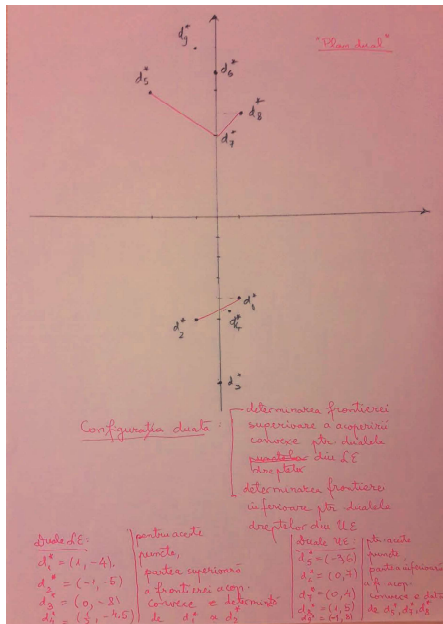 "Plan dual"
d9*
d6*
d5*
d8*
d7*
d1*
d4*
d2*
d3*
Configurația duală :
determinarea frontierei
superioare a acoperirii
convexe ptr dualele
punctelor din LE
dreptelor
determinarea frontierei
inferioare ptr dualele
dreptelor din UE
Duale LE:
d1* = (1, -4),
d2* = (-1, -5)
d3* = (0, -8)
pentru aceste
puncte,
partea superioară
a frontierei acop.
convexe e determinată
de d1* și d2*
Duale UE:
d5* = (-3, 6)
d6* = (0, 7)
d7* = (0, 4)
d8* = (1, 5)
ptr. aceste
puncte
partea inferioară
a fr. acop.
convexe e deter
de d5*, d7*, d8*